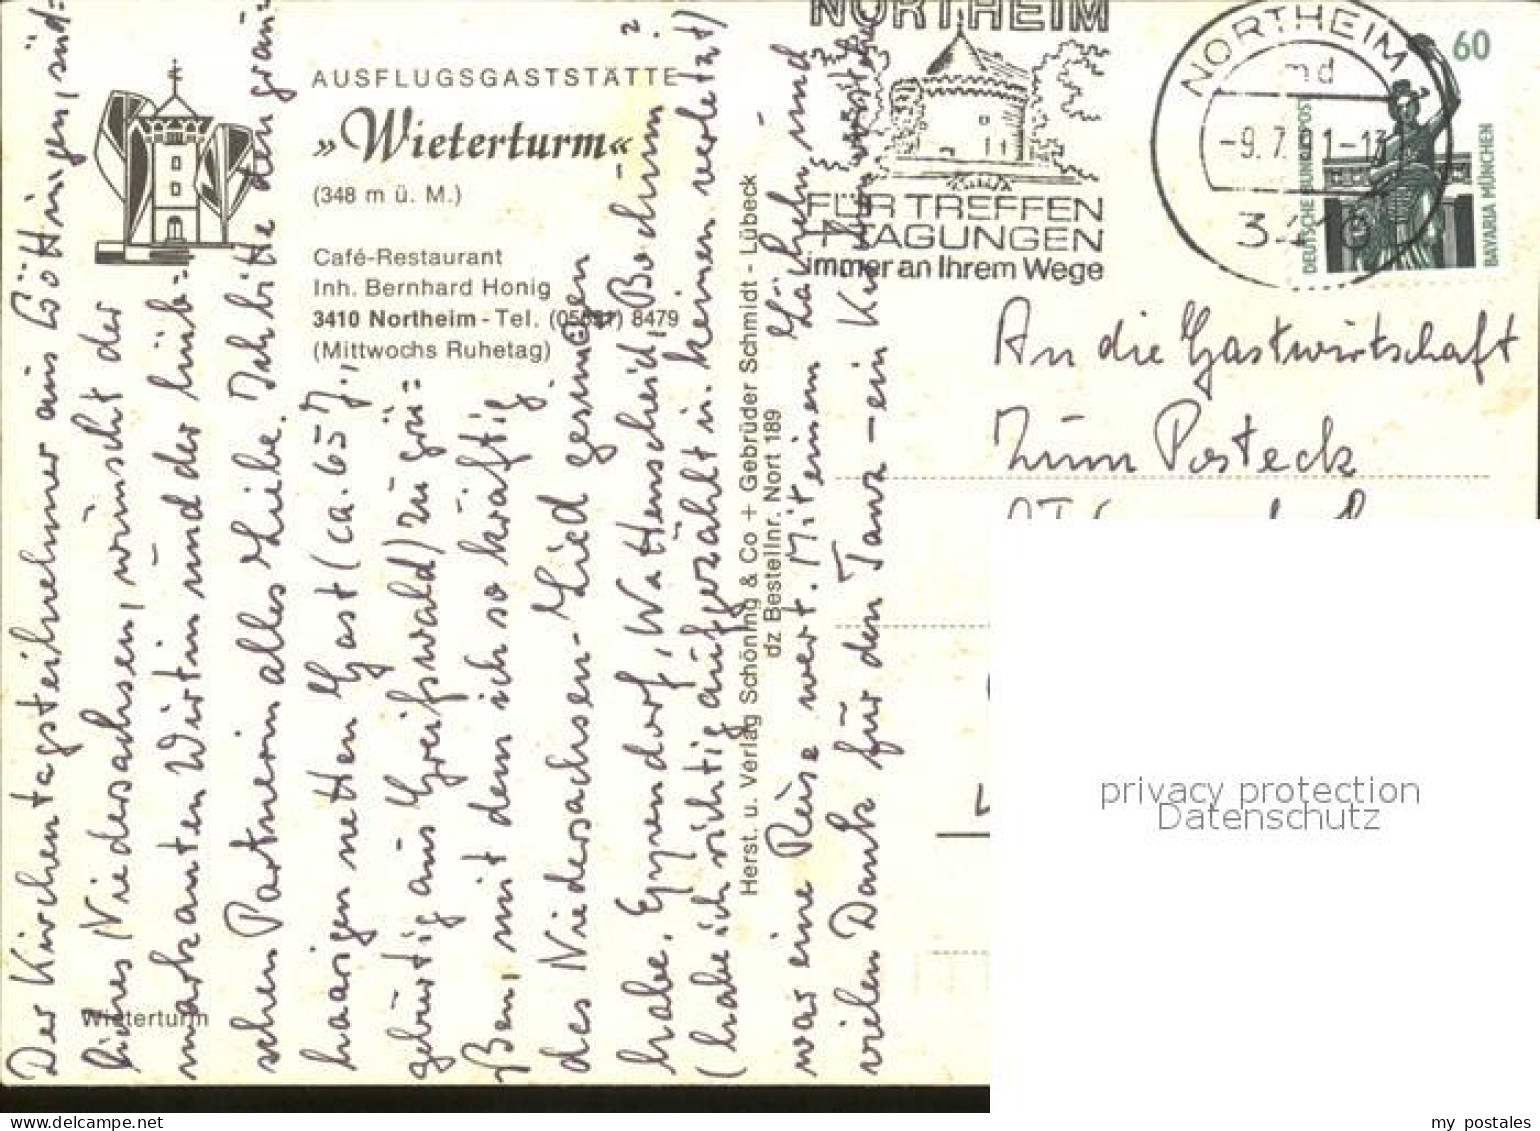 AUSFLUGSGASTSTÄTTE
»Wieterturm«
(348 m ü. M.)
Café-Restaurant
Inh. Bernhard Honig
3410 Northeim - Tel. 8479
(Mittwochs Ruhetag)
Wieterturm
Herst. u. Verlag Schöning & Co + Gebrüder Schmidt - Lübeck
dz Bestellnr. Nort 189
Der Kirchentagsteilnehmer aus Göttingen, süd=
liches Niedersachsen, wünscht der
markanten Wirtin und der hüb=
schen Partnerin alles Liebe. Ich bitte den grau=
haarigen netten Gast (ca. 65 J.,
gebürtig aus Greifswald) zu grü=
ßen, mit dem ich so kräftig
das Niedersachsen-Lied gesungen
habe. Eppendorf, Wattenscheid, Bochum?
(habe ich richtig aufgezählt u. keinen verletzt)
war eine Reise wert. Mit einem Lächeln und
vielen Dank für den Tanz – ein
NORTHEIM
FÜR TREFFEN
+ TAGUNGEN
immer an Ihrem Wege
NORTHEIM 1
md
-9.7.91-13
3410
60
DEUTSCHE BUNDESPOST
BAVARIA MÜNCHEN
An die Gastwirtschaft
Zum Posteck
privacy protection
Datenschutz
my postales